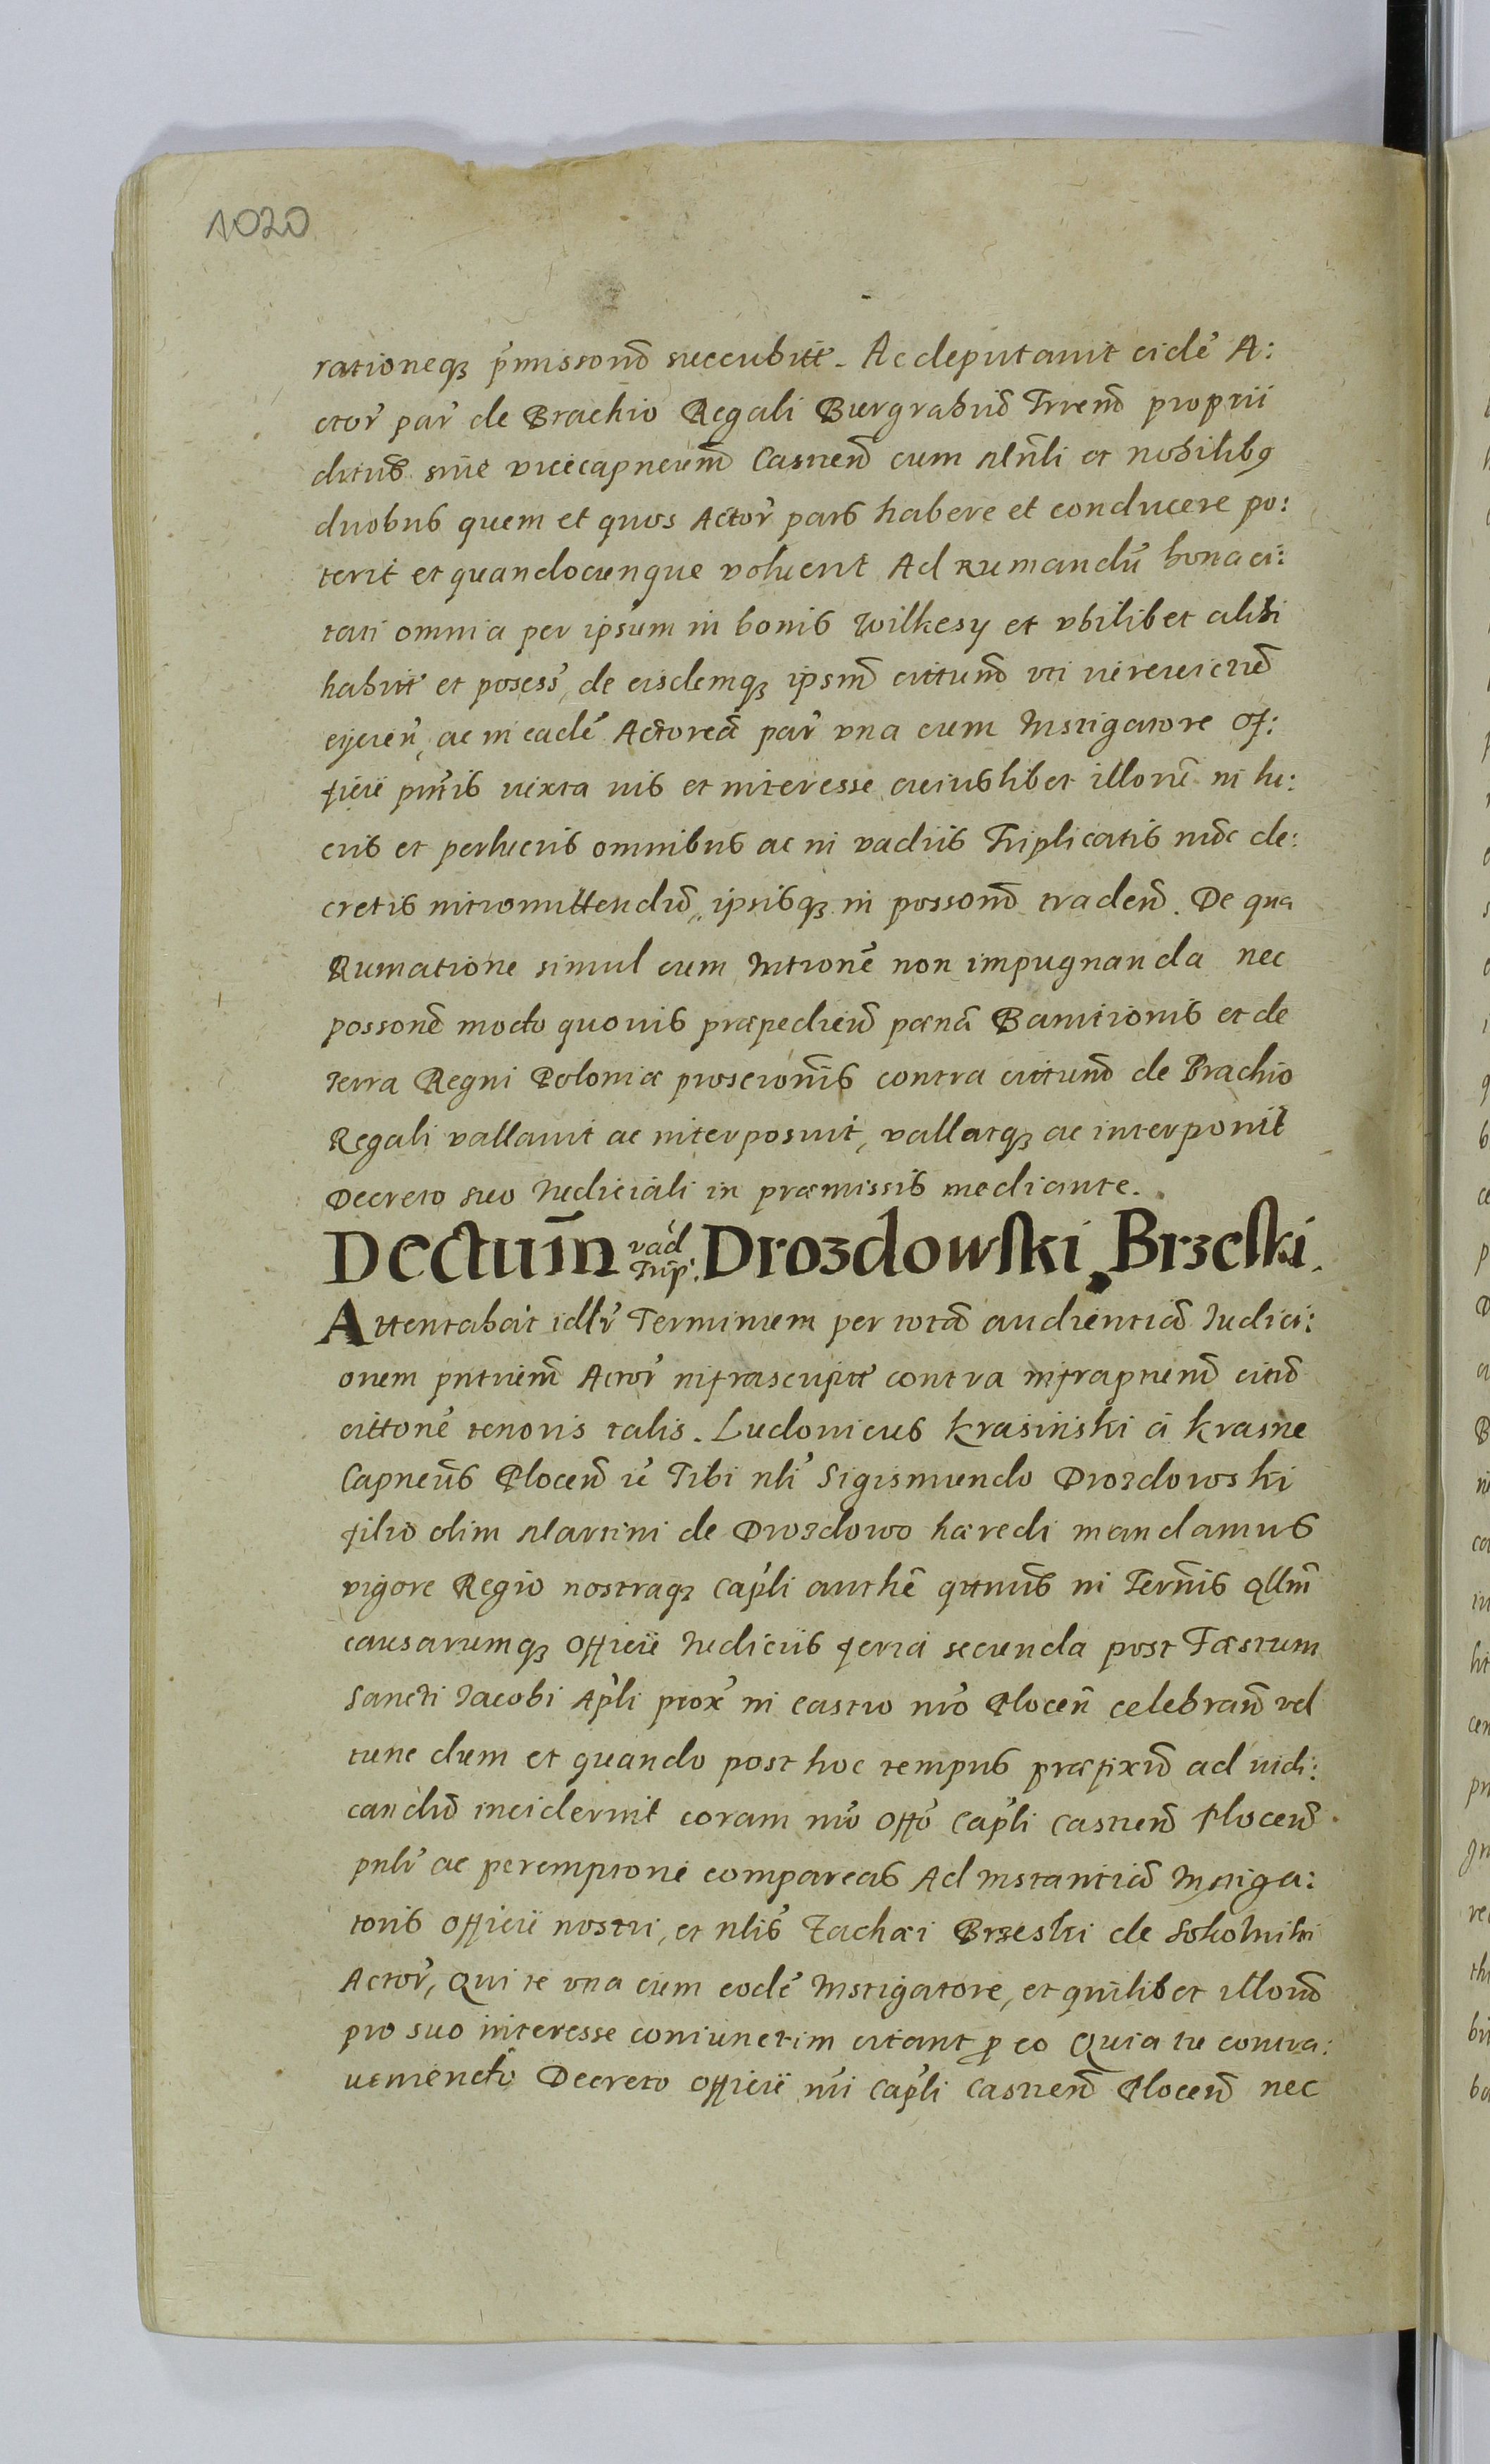 1020
rationeq3 p̄missorū succubitt. Ac deputavit eidē A:
ctor̄ par̄ de Brachio Regali Burgrabiū Trrenū proprii
ditūs sive vicecapneum̄ Castren̄ cum Mn̄li et nobilibq
duobus quem et quos Actor̄ pars habere et conducere po:
terit et quandocunque voluerit Ad rumandū bona ci:
tati omnia per ipsum in bonis Wilkesy et vbilibet alibi
habitt et posess, de eisdemq3 ipsum̄ cittum̄ vti
eijcien̄, ac in eadē Actoreā par̄ vna cum Instigatore of:
ficii pn̄tis iuxta ius et interesse cuiuslibet illorū in lu:
cris et perlucris omnibus ac in vadiis Triplicatis nūc de:
cretis intromittendū, ipsisq3 in possonē traden̄. De qua
Rumatione simul cum Intronē non impugnanda nec
possonē modo quovis præpedien̄ pœnā Banitionis et de
terra Regni Poloniæ proscrionīs contra cittum̄ de Brachio
Regali vallavit ac interposuit, vallatq3 ac interponit
Decreto suo Iudiciali in præmissis mediante.
Dectum̄ vad Trip. Drozdowski, Brzeski.
Attentabat idlr̄ Terminum per totā audientiā Iudici:
onem pntnem̄ Actor̄ infrascriptt contra infrapnem̄ citū
cittonē tenoris talis. Ludovicus Krasinski a Krasne
Capneūs Plocen̄ ić Tibi nli Sigismundo Drozdowski
filio olim Martini de Drozdowo hæredi mandamus
vigore Regio nostraq3 cap̄li authē qttnūs in Termīs qllm̄
causarumq3 officii Iudiciis feria secunda post Fæstum
Sancti Iacobi Ap̄li prox̄ in castro nr̄o Plocen̄ celebran̄ vel
tunc dum et quando post hoc tempus præfixū ad iudi:
candū inciderint coram nr̄o offo Cap̄li Castren̄ Plocen̄
pnlr̄ ac peremptorie compareas Ad Instantiā Instiga:
toris officii nostri, et nlis Zachæi Brzeski de Sokolniki
Actor̄, Qui te vna cum eodē Instigatore, et quilibet illorū
pro suo interesse coniunctim citant p̄ eo Quia tu contra:
veniendo Decreto officii nr̄i Cap̄li Castren̄ Plocen̄ nec